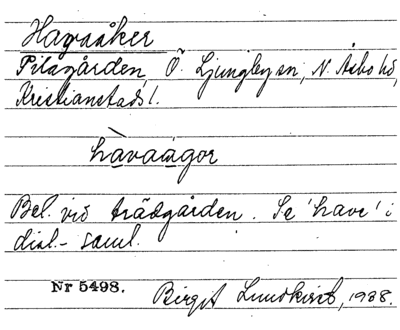 Havaåker
Pilagården, Ö. Ljungby sn, N. Åsbo hd,
Kristianstads l.
hàvaågor
Bel. vid trädgården. Se 'have' i
dial.- saml.
Nr 5498.
Birgit Lundkvist, 1938.